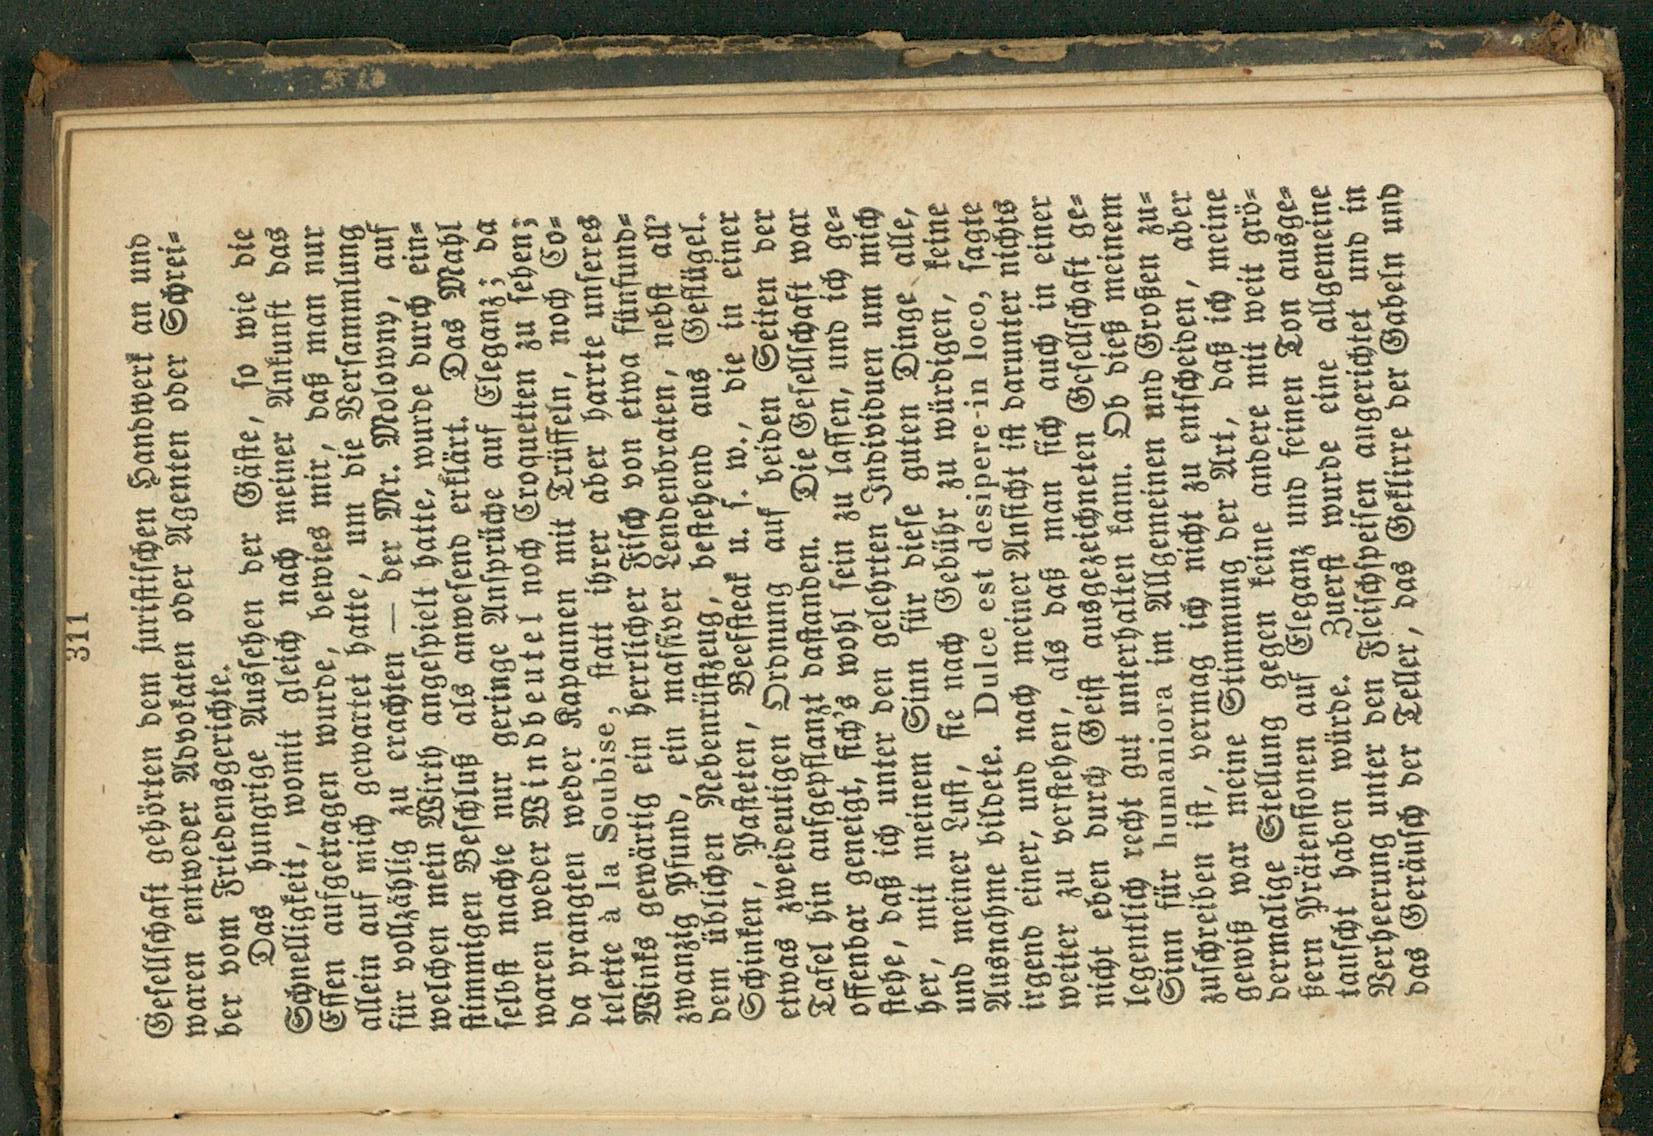 311
Gesellschaft gehörten dem juristischen Handwerk an und
waren entweder Advokaten oder Agenten oder Schrei-
ber vom Friedensgerichte.
Das hungrige Aussehen der Gäste, so wie die
Schnelligkeit, womit gleich nach meiner Ankunft das
Essen aufgetragen wurde, bewies mir, daß man nur
allein auf mich gewartet hatte, um die Versammlung
für vollzählig zu erachten — der Mr. Molowny, auf
welchen mein Wirth angespielt hatte, wurde durch ein-
stimmigen Beschluß als anwesend erklärt. Das Mahl
selbst machte nur geringe Ansprüche auf Eleganz; da
waren weder Windbeutel noch Croquetten zu sehen;
da prangten weder Kapaunen mit Trüffeln, noch Co-
telette à la Soubise, statt ihrer aber harrte unseres
Winks gewärtig ein herrlicher Fisch von etwa fünfund-
zwanzig Pfund, ein massiver Lendenbraten, nebst all'
dem üblichen Nebenrüstzeug, bestehend aus Geflügel.
Schinken, Pasteten, Beefsteak u. s. w., die in einer
etwas zweideutigen Ordnung auf beiden Seiten der
Tafel hin aufgepflanzt dastanden. Die Gesellschaft war
offenbar geneigt, sich's wohl sein zu lassen, und ich ge-
stehe, daß ich unter den gelehrten Individuen um mich
her, mit meinem Sinn für diese guten Dinge alle,
und meiner Lust, sie nach Gebühr zu würdigen, keine
Ausnahme bildete. Dulce est desipere-in loco, sagte
irgend einer, und nach meiner Ansicht ist darunter nichts
weiter zu verstehen, als daß man sich auch in einer
nicht eben durch Geist ausgezeichneten Gesellschaft ge-
legentlich recht gut unterhalten kann. Ob dieß meinem
Sinn für humaniora im Allgemeinen und Großen zu-
zuschreiben ist, vermag ich nicht zu entscheiden, aber
gewiß war meine Stimmung der Art, daß ich meine
dermalige Stellung gegen keine andere mit weit grö-
ßern Prätensionen auf Eleganz und feinen Ton ausge-
tauscht haben würde. Zuerst wurde eine allgemeine
Verheerung unter den Fleischspeisen angerichtet und in
das Geräusch der Teller, das Geklirre der Gabeln und